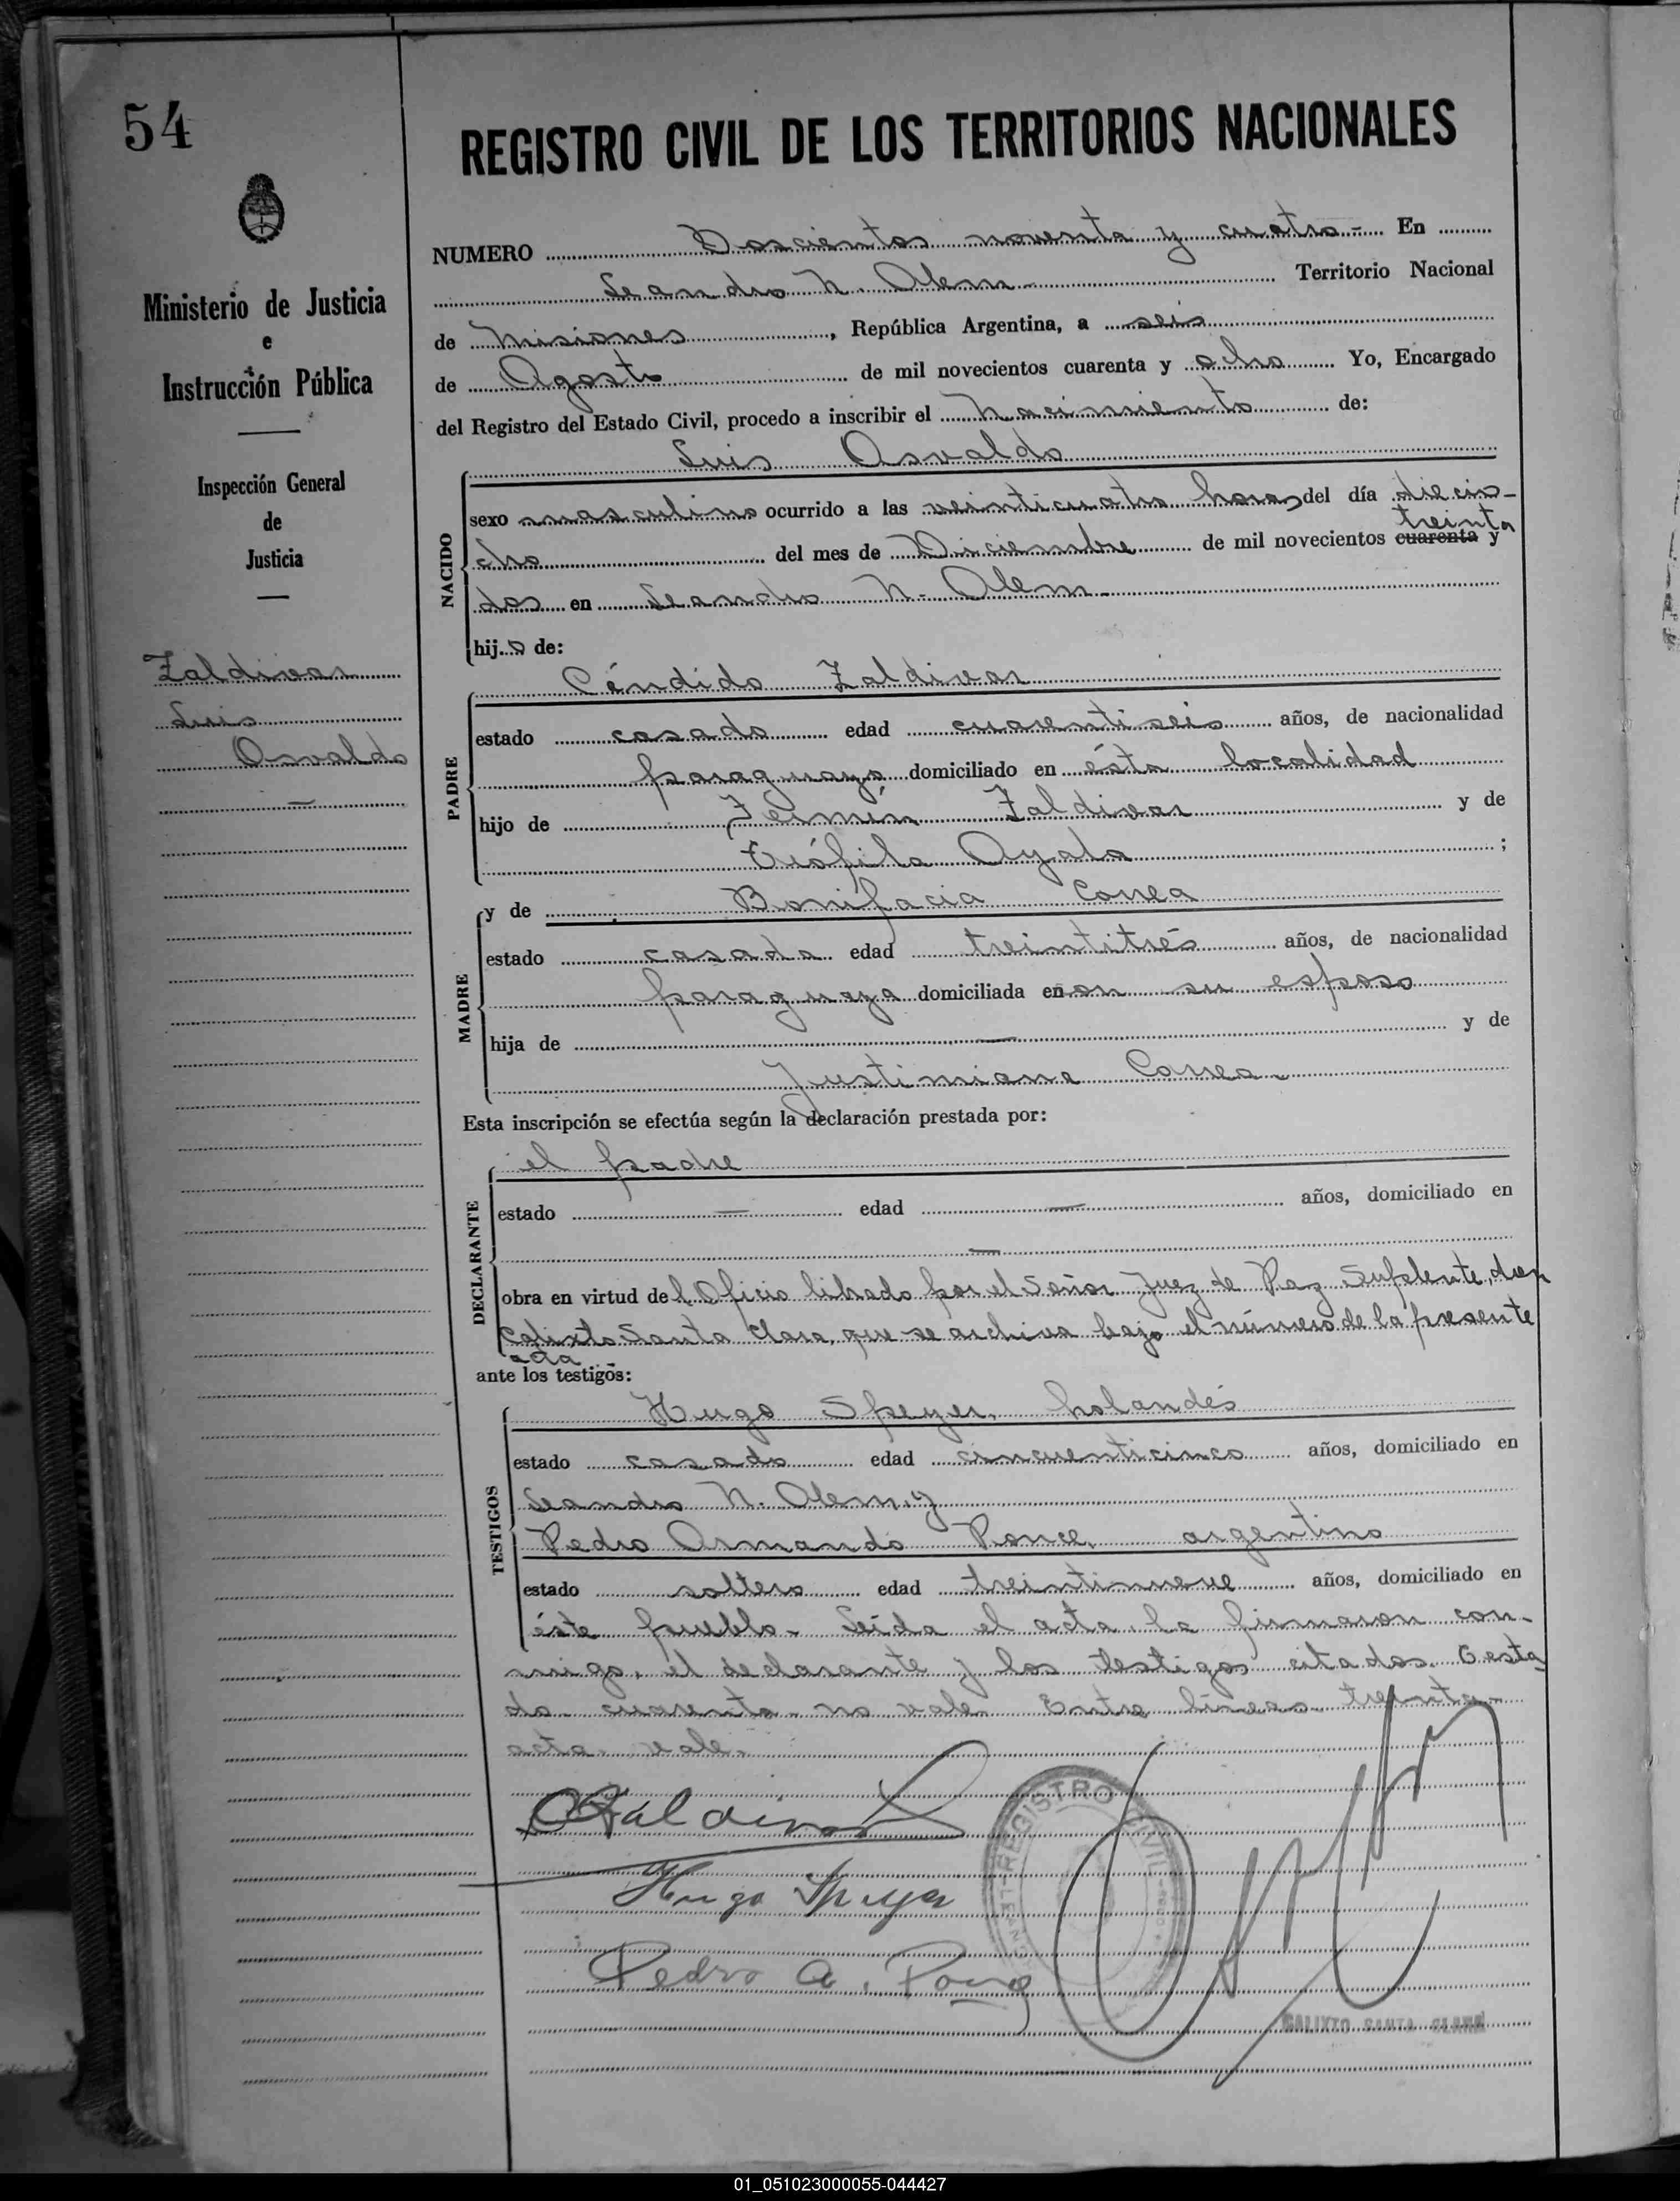 54
REGISTRO CIVIL DE LOS TERRITORIOS NACIONALES
Ministerio de Justicia
e
Instrucción Pública
Inspección General
de
Justicia
Zaldivar
Luis
Osvaldo
NUMERO Doscientos noventa y cuatro.- En
Leandro N. Alem Territorio Nacional
de Misiones, República Argentina, a seis
de Agosto de mil novecientos cuarenta y ocho Yo, Encargado
del Registro del Estado Civil, procedo a inscribir el nacimiento de:
Luis Osvaldo
NACIDO
sexo masculino ocurrido a las veinticuatro horas del día diecio-
treinta
cho del mes de Diciembre de mil novecientos cuarenta y
dos en Leandro N. Alem.
hijo de:
Cándido Zaldivar
PADRE
estado casado edad cuarentiseis años, de nacionalidad
paraguayo domiciliado en ésta localidad
hijo de Fermín Zaldivar y de
Teófila Ayala ;
y de Bonifacia Correa
MADRE
estado casada edad treintitrés años, de nacionalidad
paraguaya domiciliada en con su esposo
hija de — y de
Justiniana Correa.
Esta inscripción se efectúa según la declaración prestada por:
el padre
DECLARANTE
estado — edad — años, domiciliado en
—
obra en virtud del Oficio librado por el Señor Juez de Paz Suplente, don
Calixto Santa Clara, que se archiva bajo el número de la presente
acta
ante los testigos:
Hugo Speyer, holandés
TESTIGOS
estado casado edad cincuenticinco años, domiciliado en
Leandro N. Alem, y
Pedro Armando Ponce, argentino
estado soltero edad treintinueve años, domiciliado en
éste pueblo. Leída el acta, la firmaron con-
migo, el declarante y los testigos citados. Testa
do cuarenta no vale. Entre líneas treinta
acta. vale.
CZaldivar
Hugo Speyer
Pedro A. Ponce
REGISTRO CIVIL
CALIXTO SANTA CLARA
01_051023000055-044427